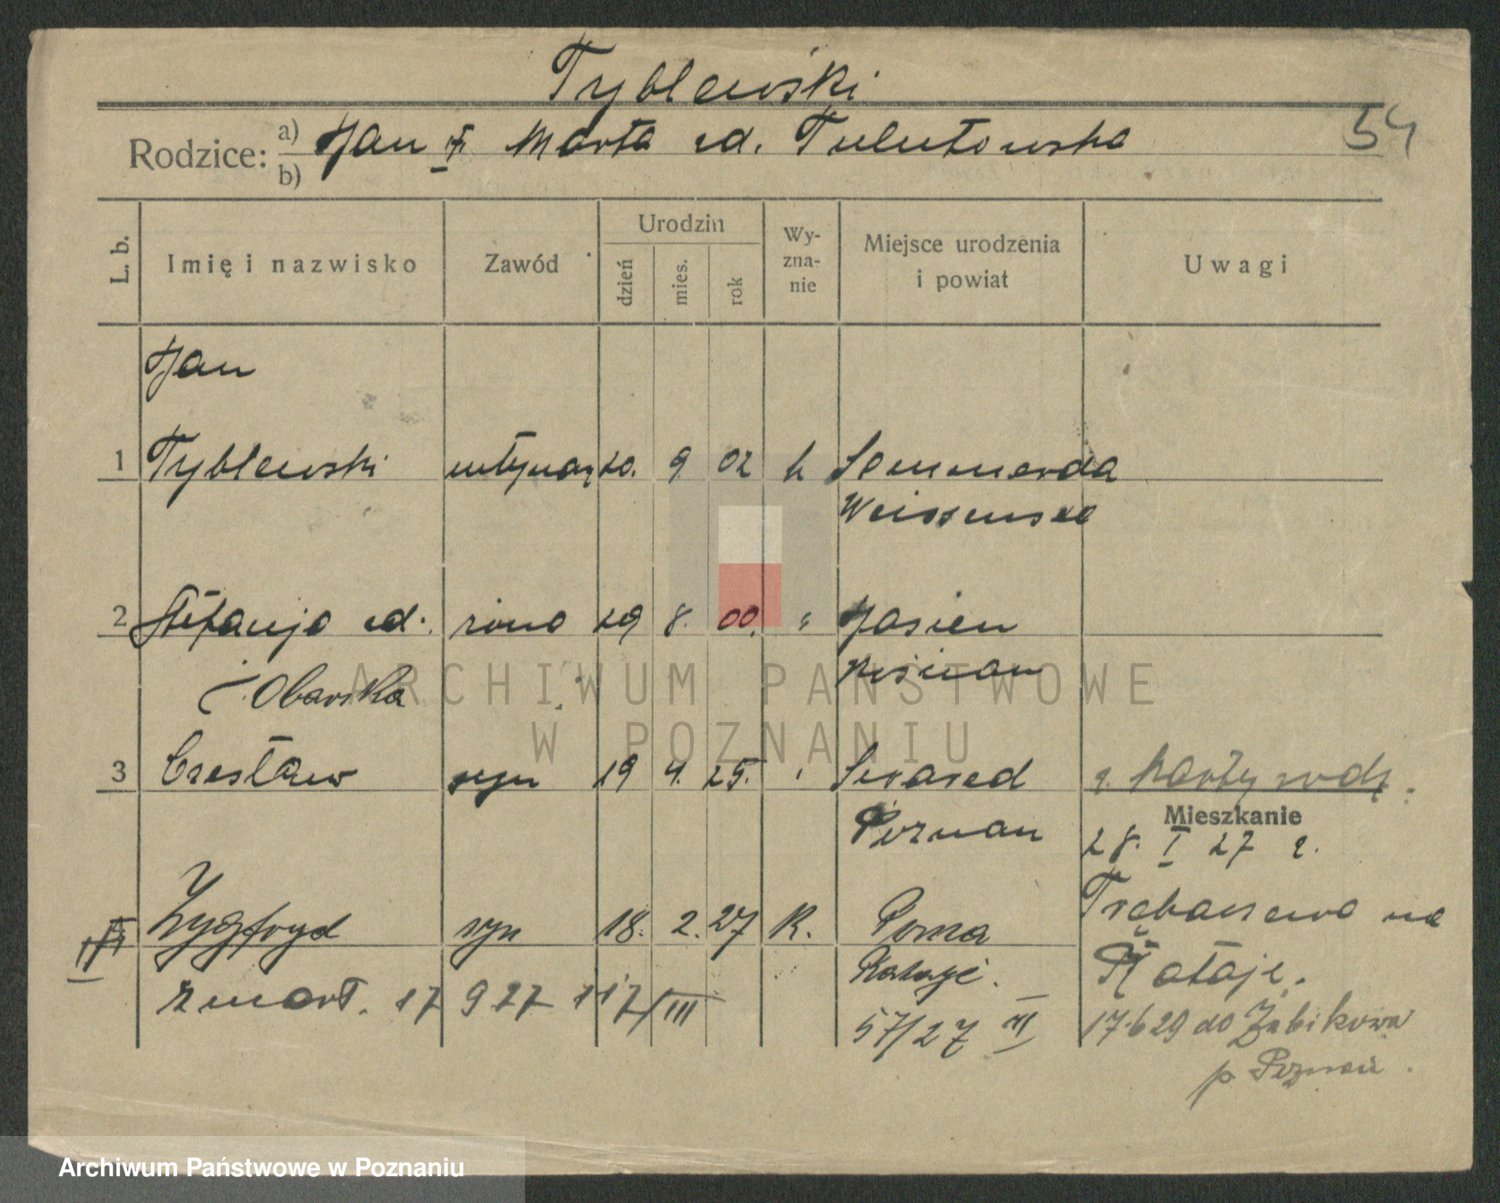 Tyblewski
54
Rodzice: a) Jan Marta Tulutowska
b)
L. b. Imię i nazwisko Zawód Urodzin dzień mies. rok Wyzna-nie Miejsce urodzenia i powiat Uwagi
Jan
1 Tyblewski młynarz 20. 9. 02 k Sömmerda
Weissensee
2 Stefanja żona 29 8. 00. " Jasień
Obarska Kościan
3 Czesław syn 19 4. 25. " z karty rodz.
Poznań Mieszkanie
28. I 27 r.
Zygfryd syn 18. 2. 27 R. Pozna Trębaczewo na
Rataje. Rataje.
zmarł. 17 9 27 117/III 57/27 III 17.6 29 do Żabikowa
p Poznań.
ARCHIWUM PAŃSTWOWE
W POZNANIU
Archiwum Państwowe w Poznaniu